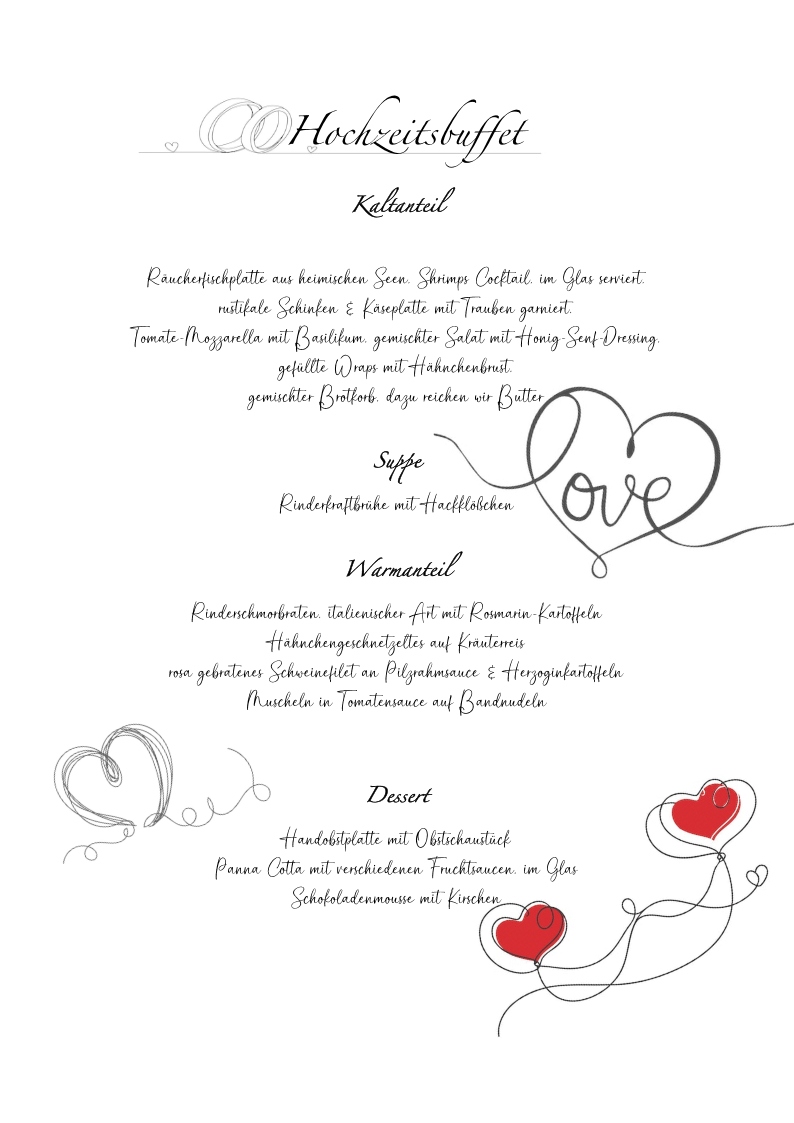 Hochzeitsbuffet
Kaltanteil
Räucherfischplatte aus heimischen Seen, Shrimps Cocktail, im Glas serviert,
rustikale Schinken & Käseplatte mit Trauben garniert,
Tomate-Mozzarella mit Basilikum, gemischter Salat mit Honig-Senf-Dressing,
gefüllte Wraps mit Hähnchenbrust,
gemischter Brotkorb, dazu reichen wir Butter
love
Suppe
Rinderkraftbrühe mit Hackklößchen
Warmanteil
Rinderschmorbraten, italienischer Art mit Rosmarin-Kartoffeln
Hähnchengeschnetzeltes auf Kräuterreis
rosa gebratenes Schweinefilet an Pilzrahmsauce & Herzoginkartoffeln
Muscheln in Tomatensauce auf Bandnudeln
Dessert
Handobstplatte mit Obstschaustück
Panna Cotta mit verschiedenen Fruchtsaucen, im Glas
Schokoladenmousse mit Kirschen